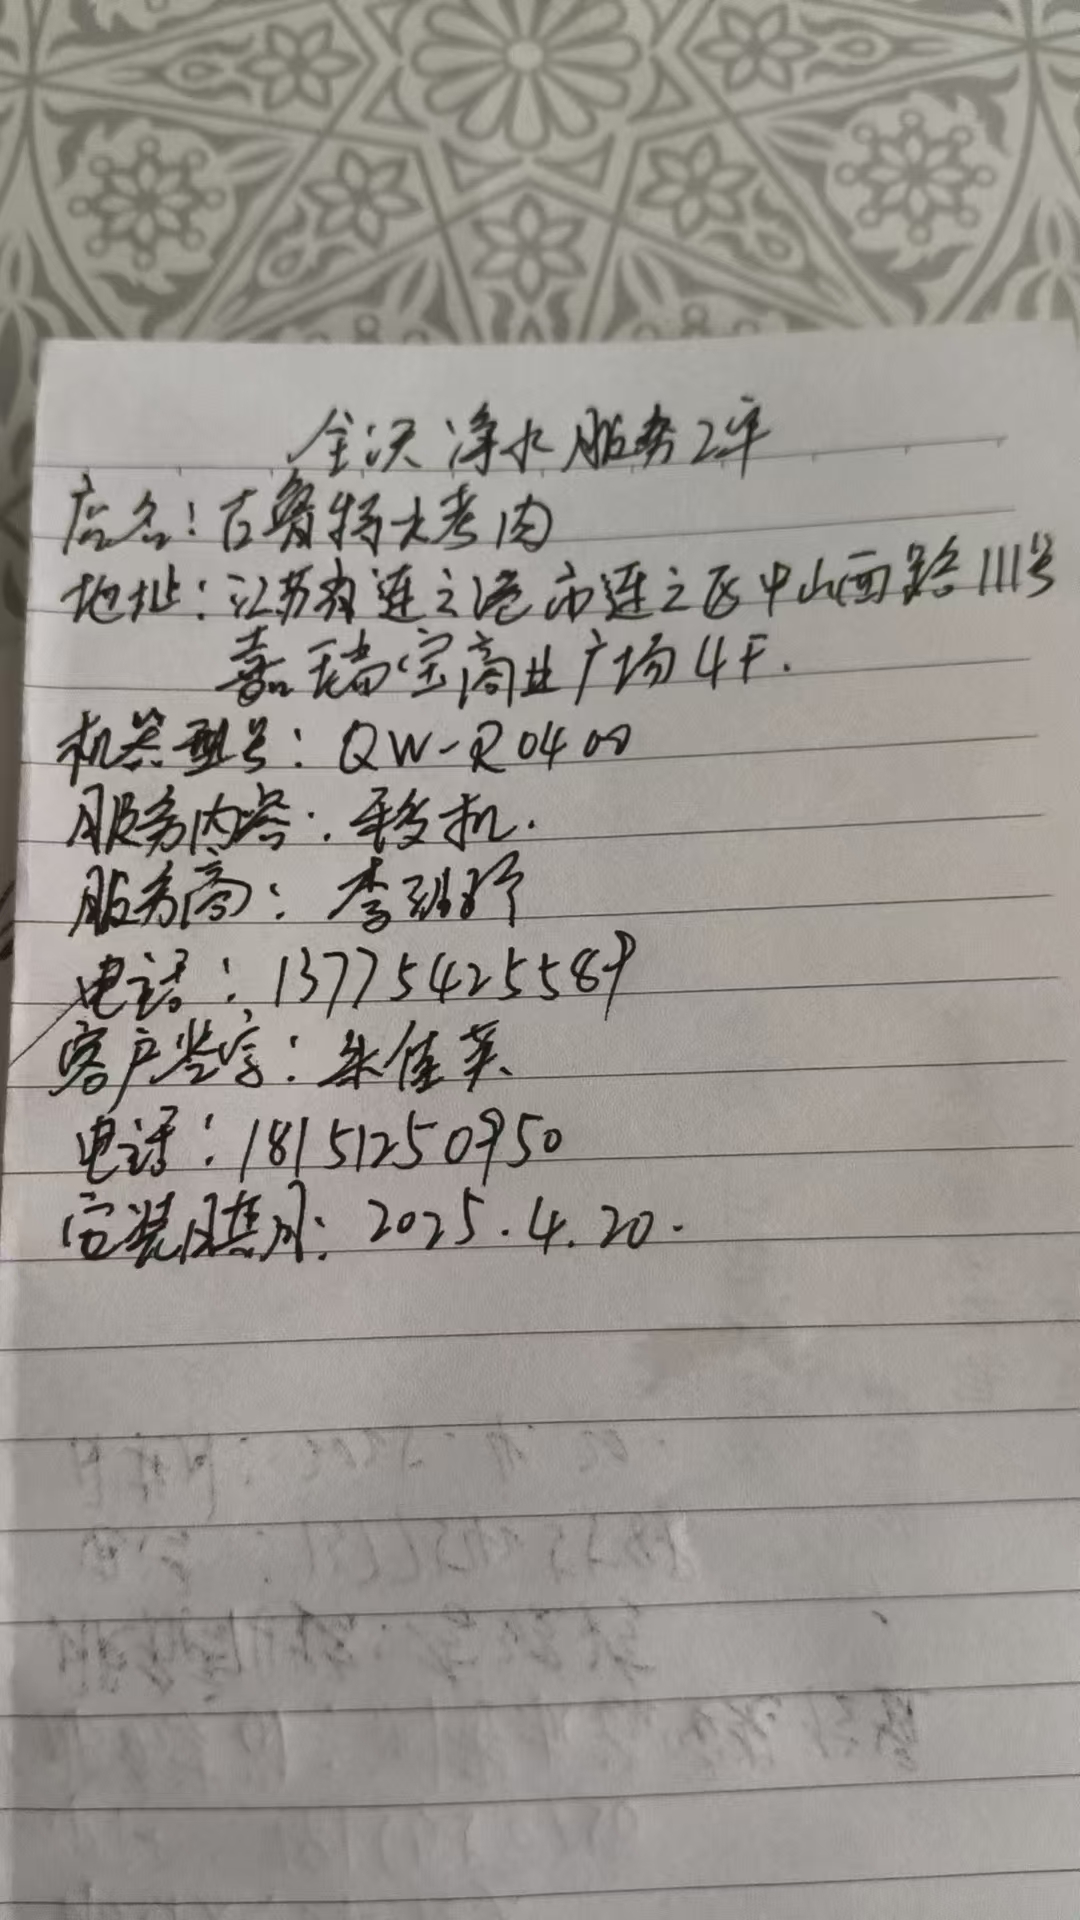 全沃净水服务2单
店名:古鲁特大考肉
地址:江苏省连云港市连云区中山西路111号
嘉瑞宝商业广场4F.
机器型号:QW-R0400
服务内容:移机.
服务商:李
电话:13775425589
客户签字:朱佳英
电话:18151250950
安装日期:2025.4.20.